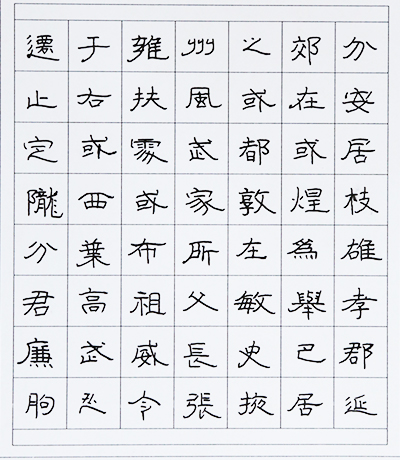 遷于雍州之郊分
止右扶風或在安
定或處武都或居
隴西或家敦煌枝
分葉布所在為雄
君高祖父敏舉孝
廉武威長史巴郡
朐忍令張掖居延